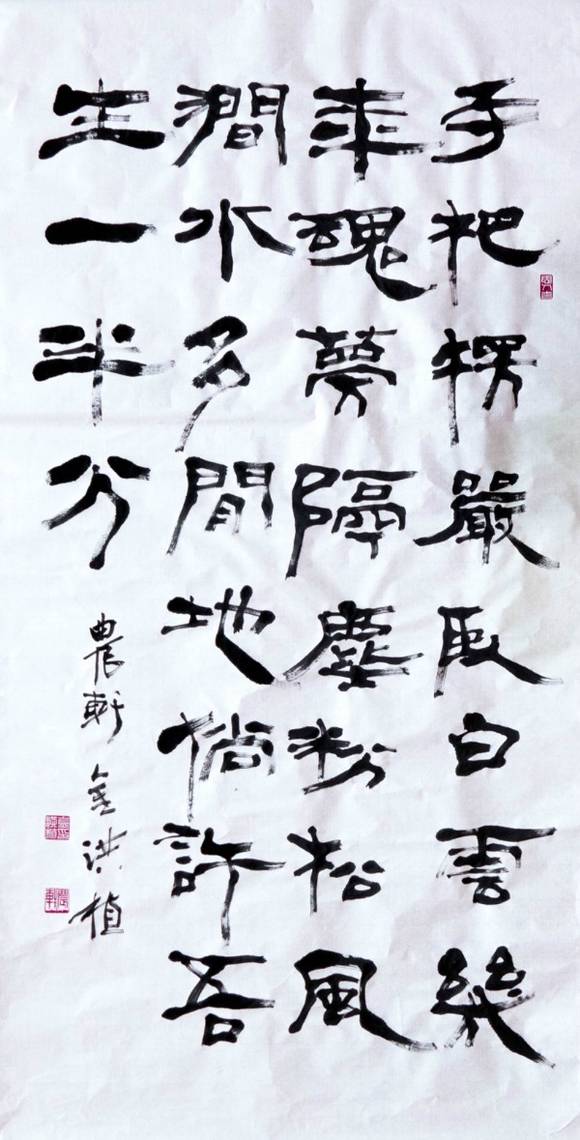 手把楞嚴臥白雲幾
年魂夢隔塵粉松風
澗水多閒地倘許吾
生一半分
農軒金洪